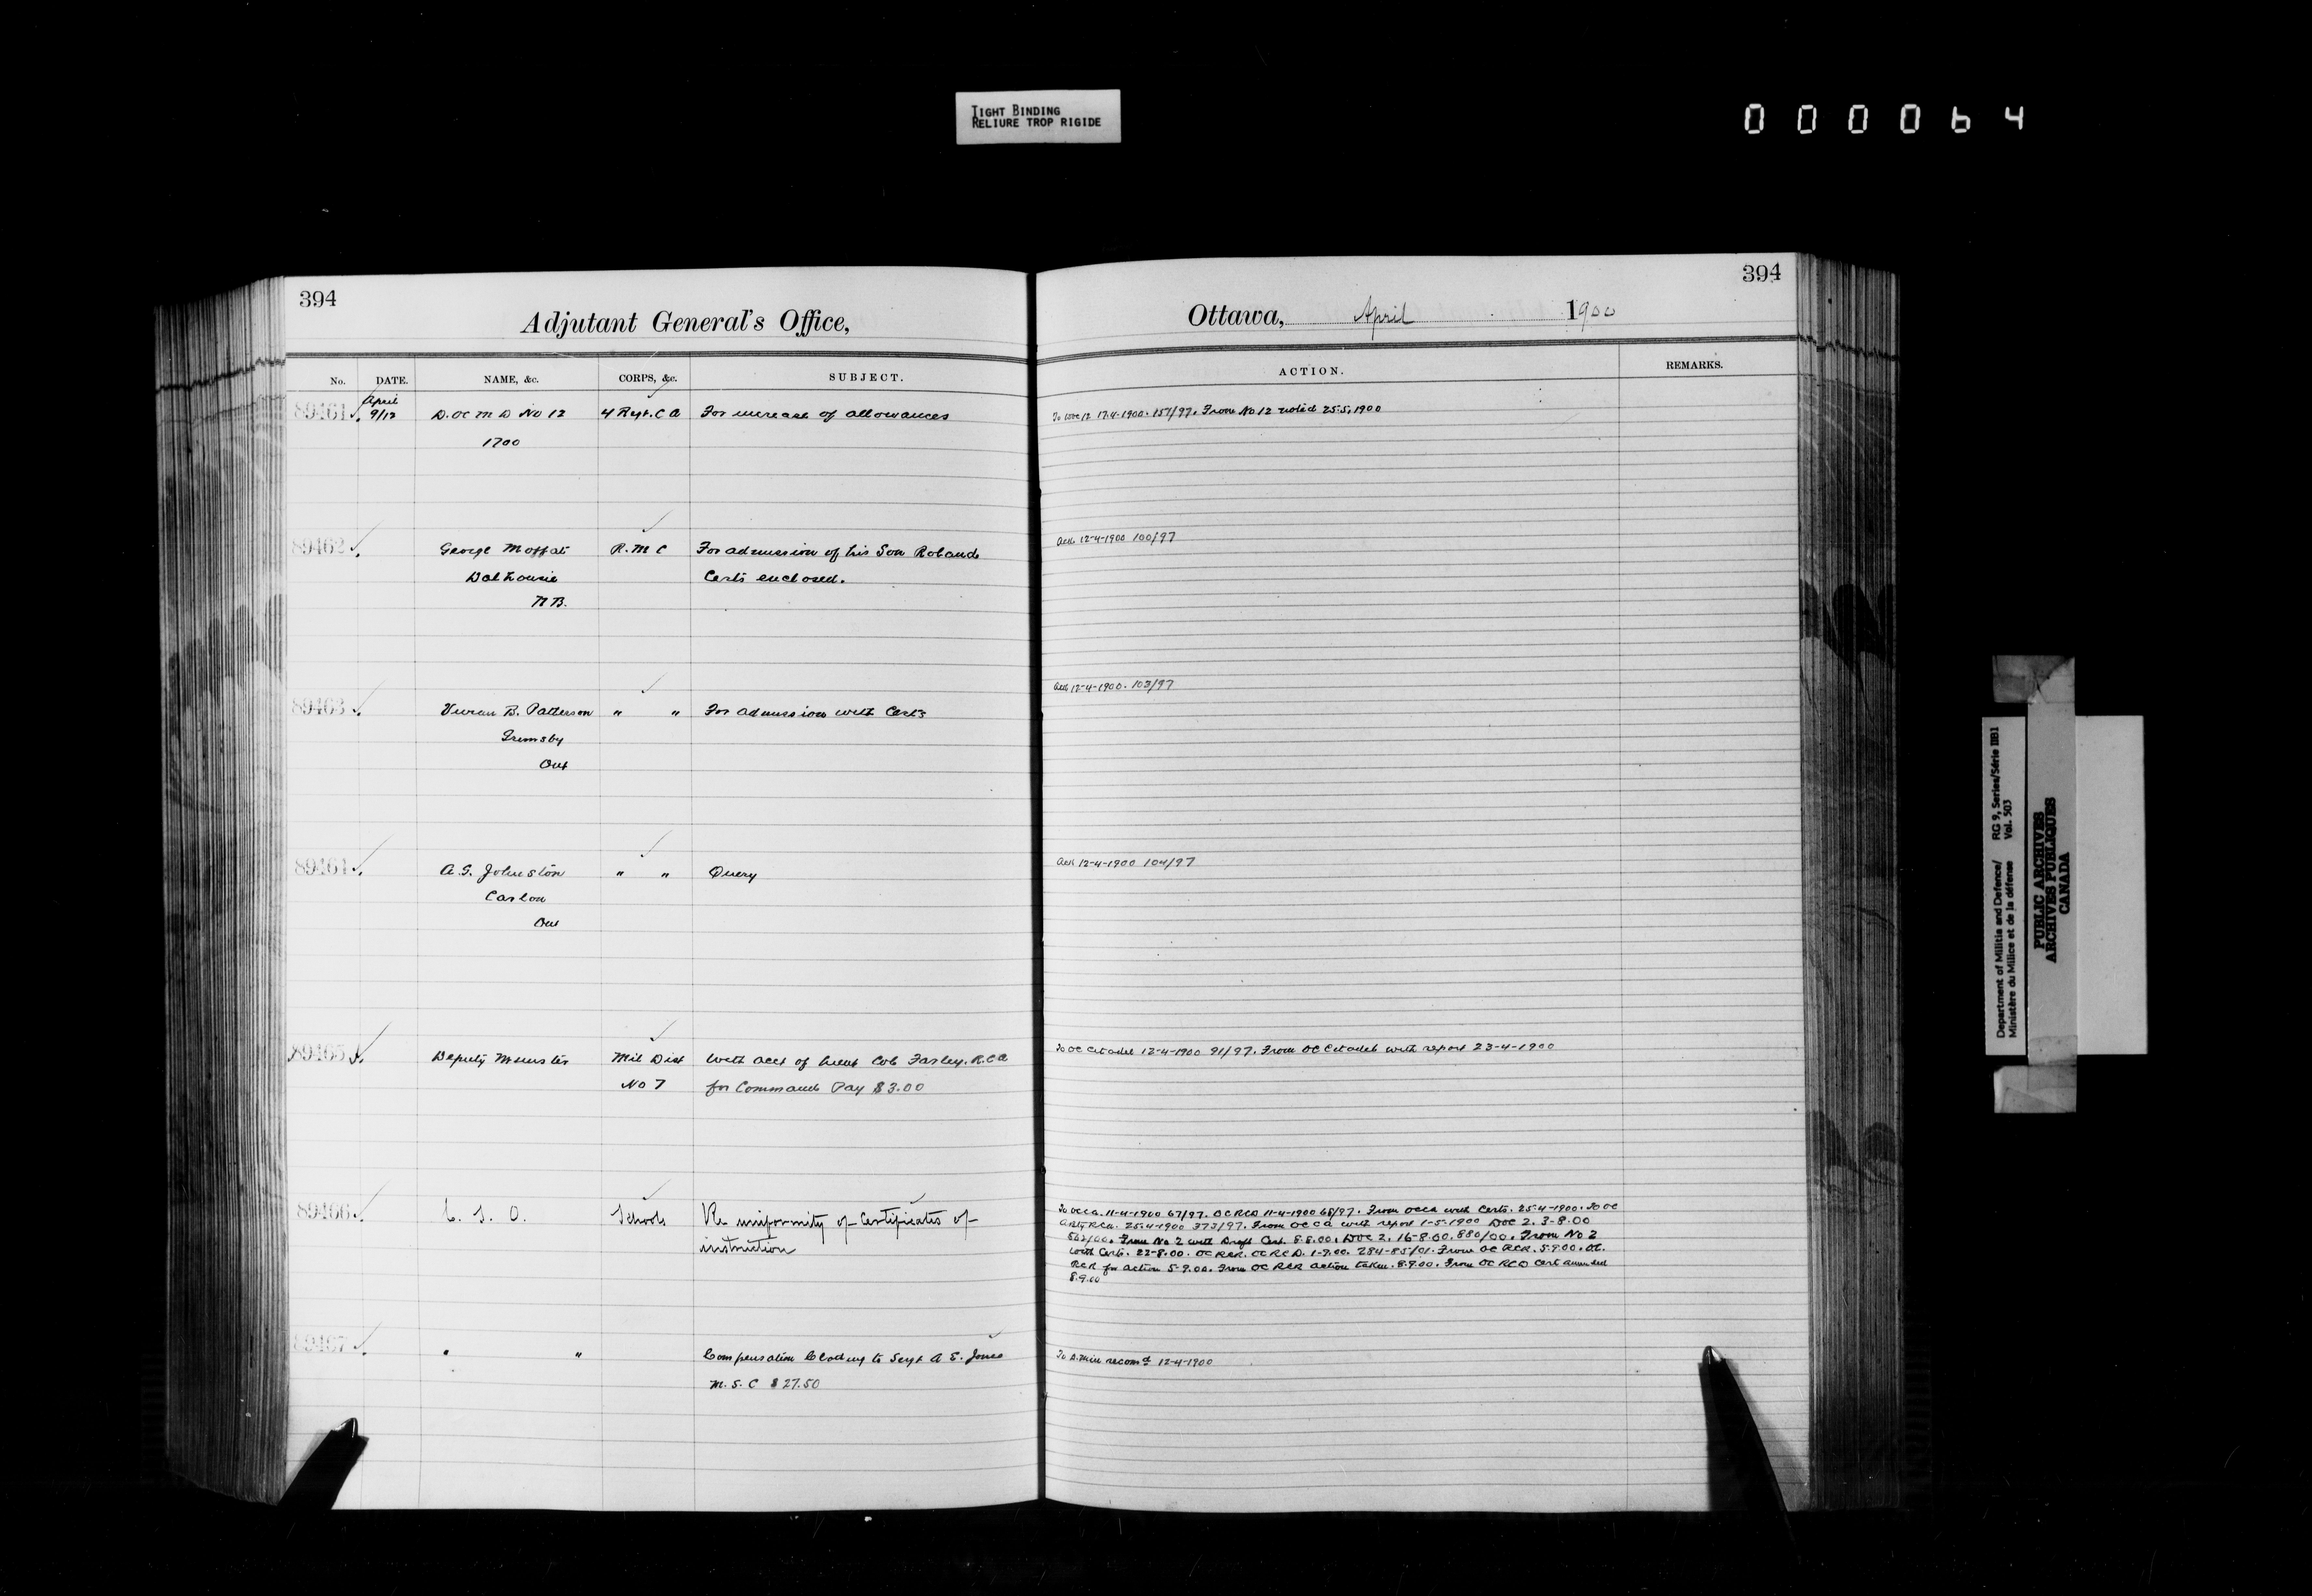 TIGHT BINDING
RELIURE TROP RIGIDE
000064
394
Adjutant General's Office,
No. DATE. NAME, &c. CORPS, &c. SUBJECT.
April
89461 9/12 D.OC M D No 12 4 Regt. C A For increase of allowances
1700
89462 George Moffat R.M C For admission of his Son Roland
Dalhousie Certs enclosed.
N B.
89463 Vivian B. Patterson " " For admission with Certs
Grimsby
Ont
89464 A.G. Johnston " " Query
Ont
89465 Deputy Minister Mil Dist With acct of Lieut Col Farley. R.C A
No 7 for Command Pay $3.00
89466 C. S. O. Schools Re uniformity of Certificates of
instruction
89467 " " Compensation Clothing to Sergt A E. Jones
M. S. C $27.50
394
Ottawa, April 1900
ACTION. REMARKS.
To DOC 12 17.4.1900. 157/97. From No 12 noted 25.5.1900
Ack 12-4-1900 100/97
Ack 12-4-1900. 103/97
Ack 12-4-1900 104/97
To OC Citadel 12-4-1900 91/97. From OC Citadel with report 23-4-1900
To OCCA. 11-4-1900 67/97. OC RCD 11-4-1900 68/97. From OCCA with Certs. 25-4-1900. To OC
RCA. 25-4-1900 373/97. From OCCA with report 1-5-1900 DOC 2. 3-8.00
From No 2 with Draft Cert. 8.8.00. DOC 2. 16-8.00. 880/00. From No 2
with Certs. 22-8.00. OC RCR. OC RCD. 1-9.00. 284-85/01. From OC RCR. 5.9.00. OC.
RCR for action 5-9.00. From OC RCR action taken. 8.9.00. From OC RCD Cert amended
8.9.00
To D.Min recomd 12-4-1900
Department of Militia and Defence/ RG 9, Series/Série IIB1
Ministère du Milice et de la défense Vol. 503
PUBLIC ARCHIVES
ARCHIVES PUBLIQUES
CANADA